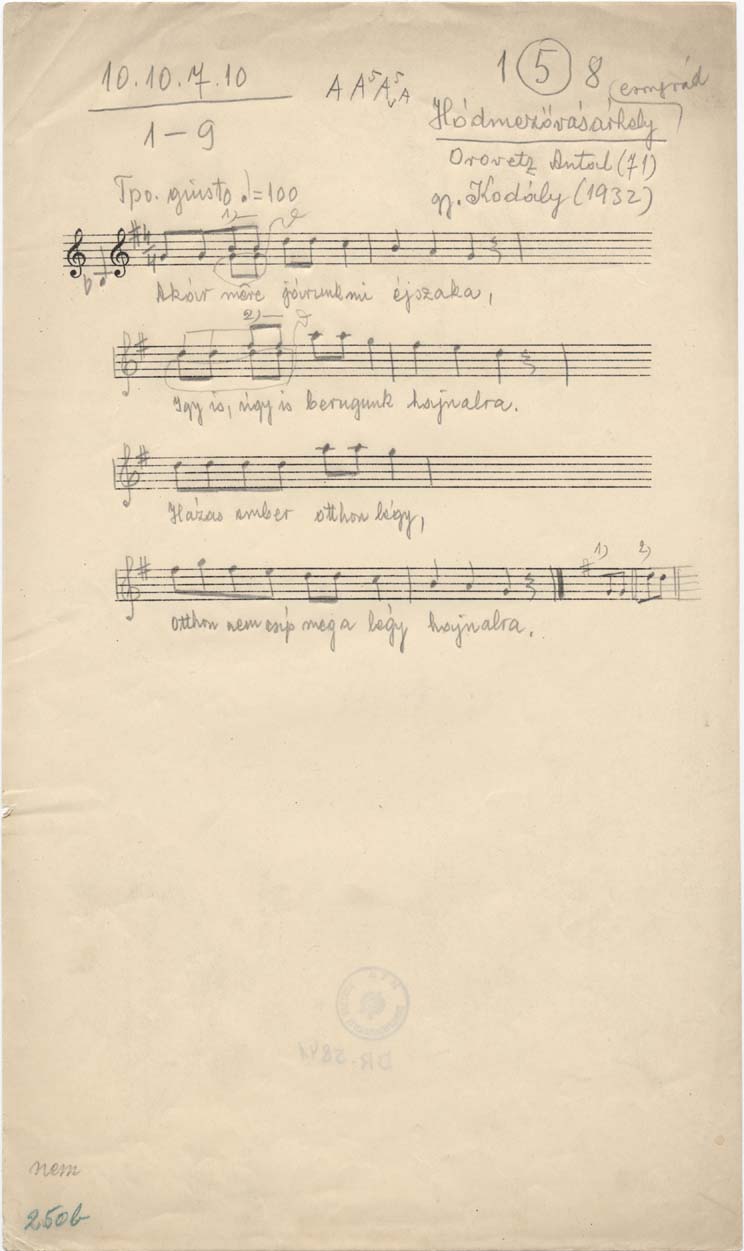 10.10.7.10
A A⁵ A⁵ᵥ A
1 (5) 8
1-9
Csongrád
Hódmezővásárhely
Orovetz Antal (71)
gy. Kodály (1932)
Tpo. giusto ♩=100
1)
Akár mére járunk mi éjszaka,
2)
Igy is, úgy is berugunk hajnalra.
Házas ember otthon légy,
1) 2)
Otthon nem csip meg a légy hajnalra.
DR-5841
nem
250b